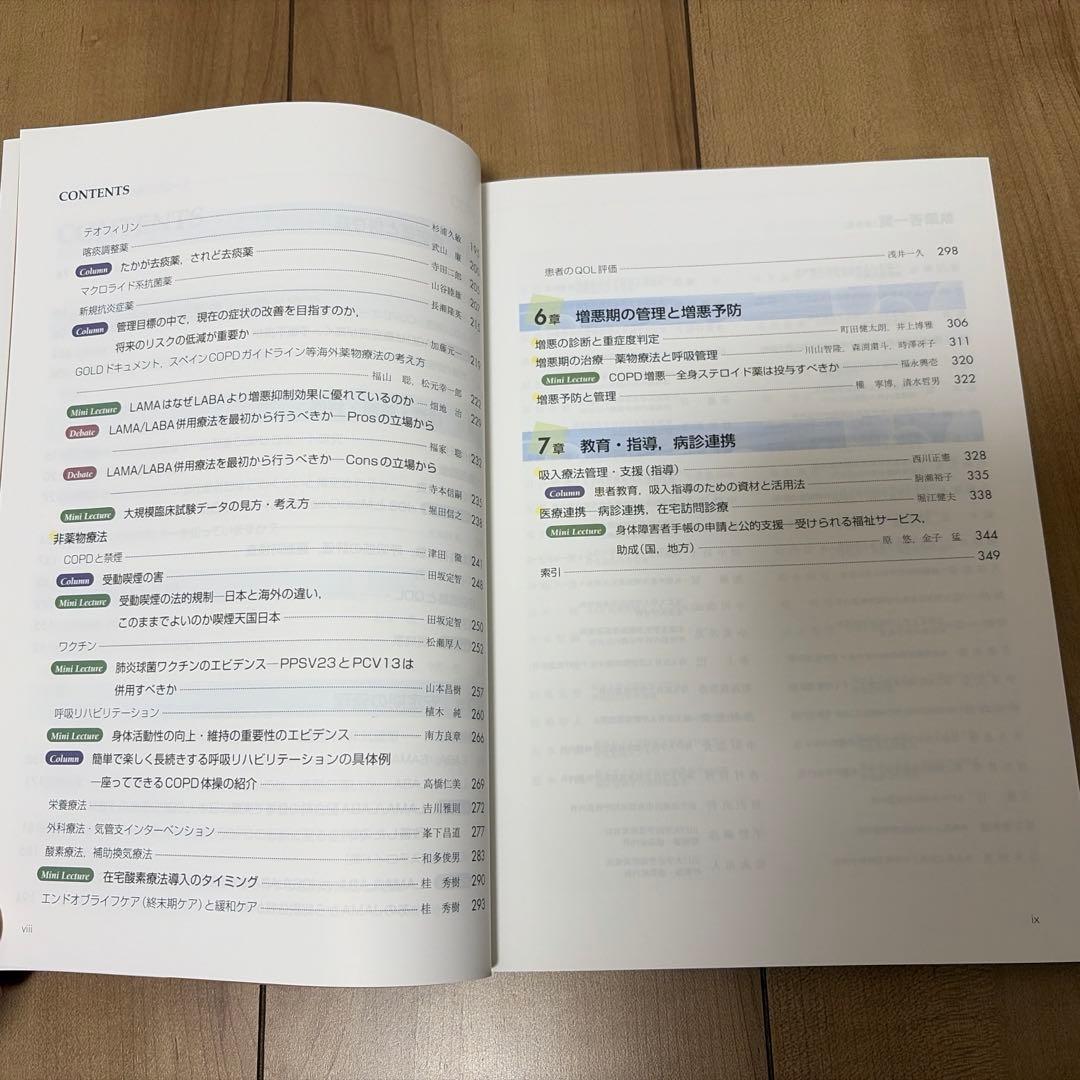 CONTENTS
テオフィリン 杉浦久敏 195
喀痰調整薬 武山 廉 200
Column たかが去痰薬，されど去痰薬 寺田二郎 205
マクロライド系抗菌薬 山谷睦雄 207
新規抗炎症薬 長瀬隆英 215
Column 管理目標の中で，現在の症状の改善を目指すのか，
将来のリスクの低減が重要か 加藤元一 219
GOLDドキュメント，スペインCOPDガイドライン等海外薬物療法の考え方
福山 聡，松元幸一郎 222
Mini Lecture LAMAはなぜLABAより増悪抑制効果に優れているのか 畑地 治 229
Debate LAMA/LABA併用療法を最初から行うべきか―Prosの立場から
福家 聡 232
Debate LAMA/LABA併用療法を最初から行うべきか―Consの立場から
寺本信嗣 235
Mini Lecture 大規模臨床試験データの見方・考え方 堀田信之 238
非薬物療法
COPDと禁煙 津田 徹 241
Column 受動喫煙の害 田坂定智 248
Mini Lecture 受動喫煙の法的規制―日本と海外の違い，
このままでよいのか喫煙天国日本 田坂定智 250
ワクチン 松瀬厚人 252
Mini Lecture 肺炎球菌ワクチンのエビデンス―PPSV23とPCV13は
併用すべきか 山本昌樹 257
呼吸リハビリテーション 植木 純 260
Mini Lecture 身体活動性の向上・維持の重要性のエビデンス 南方良章 266
Column 簡単で楽しく長続きする呼吸リハビリテーションの具体例
―座ってできるCOPD体操の紹介 高橋仁美 269
栄養療法 吉川雅則 272
外科療法・気管支インターベンション 峯下昌道 277
酸素療法，補助換気療法 一和多俊男 283
Mini Lecture 在宅酸素療法導入のタイミング 桂 秀樹 290
エンドオブライフケア（終末期ケア）と緩和ケア 桂 秀樹 293
viii
患者のQOL評価 浅井一久 298
6章 増悪期の管理と増悪予防
増悪の診断と重症度判定 町田健太朗，井上博雅 306
増悪期の治療―薬物療法と呼吸管理 川山智隆，森渕粛斗，時澤冴子 311
Mini Lecture COPD増悪―全身ステロイド薬は投与すべきか 福永興壱 320
増悪予防と管理 權 寧博，清水哲男 322
7章 教育・指導，病診連携
吸入療法管理・支援（指導） 西川正憲 328
Column 患者教育，吸入指導のための資材と活用法 駒瀬裕子 335
医療連携―病診連携，在宅訪問診療 堀江健夫 338
Mini Lecture 身体障害者手帳の申請と公的支援―受けられる福祉サービス，
助成（国，地方） 原 悠，金子 猛 344
索引 349
ix